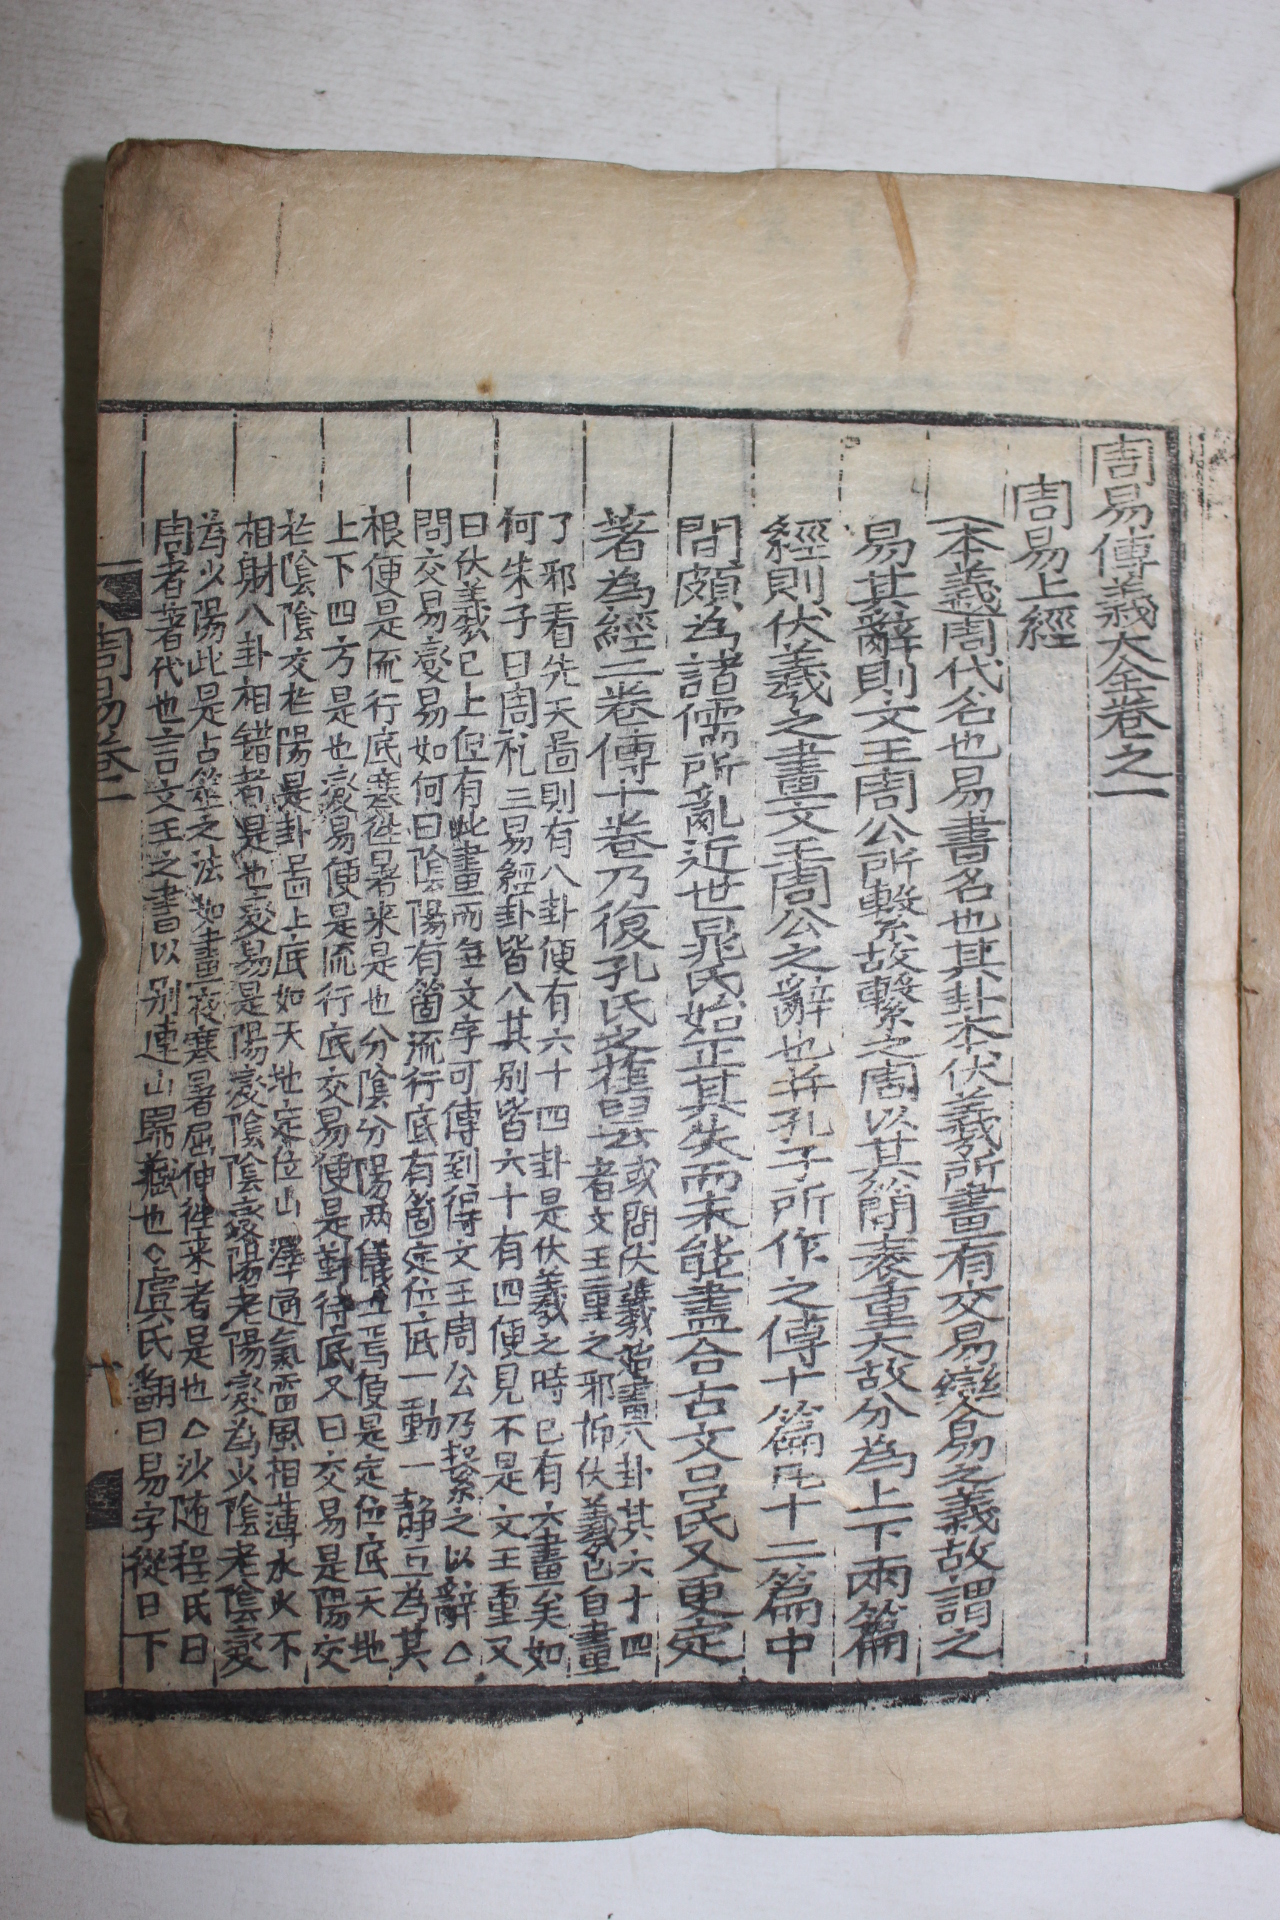 周易傳義大全卷之一
周易上經
本義周代名也易書名也其卦本伏羲所畫有交易變易之義故謂之
易其辭則文王周公所繫故繫之周以其簡袠重大故分為上下兩篇
經則伏羲之畫文王周公之辭也并孔子所作之傳十篇凡十二篇中
間頗為諸儒所亂近世晁氏始正其失而未能盡合古文呂氏又更定
著為經二卷傳十卷乃復孔氏之舊云
或問伏羲始畫八卦其六十四
者文王重之邪抑伏羲已自畫
了邪看先天啚則有八卦便有六十四卦是伏羲之時已有六畫矣如
何朱子曰周礼三易經卦皆八其別皆六十有四便見不是文王重又
曰伏羲已上但有此畫而無文字可傳到得文王周公乃繫之以辭△
問交易變易如何曰陰陽有箇流行底有箇定位底一動一靜互為其
根便是流行底寒徃暑来是也分陰分陽两儀立焉便是定位底天地
上下四方是也變易便是流行底交易便是對待底又曰交易是陽交
於陰陰交於陽是卦啚上底如天地定位山澤通氣雷風相薄水火不
相射八卦相錯者是也變易是陽變陰陰變陽老陽變為少陰老陰變
為少陽此是占筮之法如畫夜寒暑屈伸徃来者是也△沙随程氏曰
周者著代也言文王之書以别連山歸藏也◇虞氏翻曰易字從日下
周易卷一
十